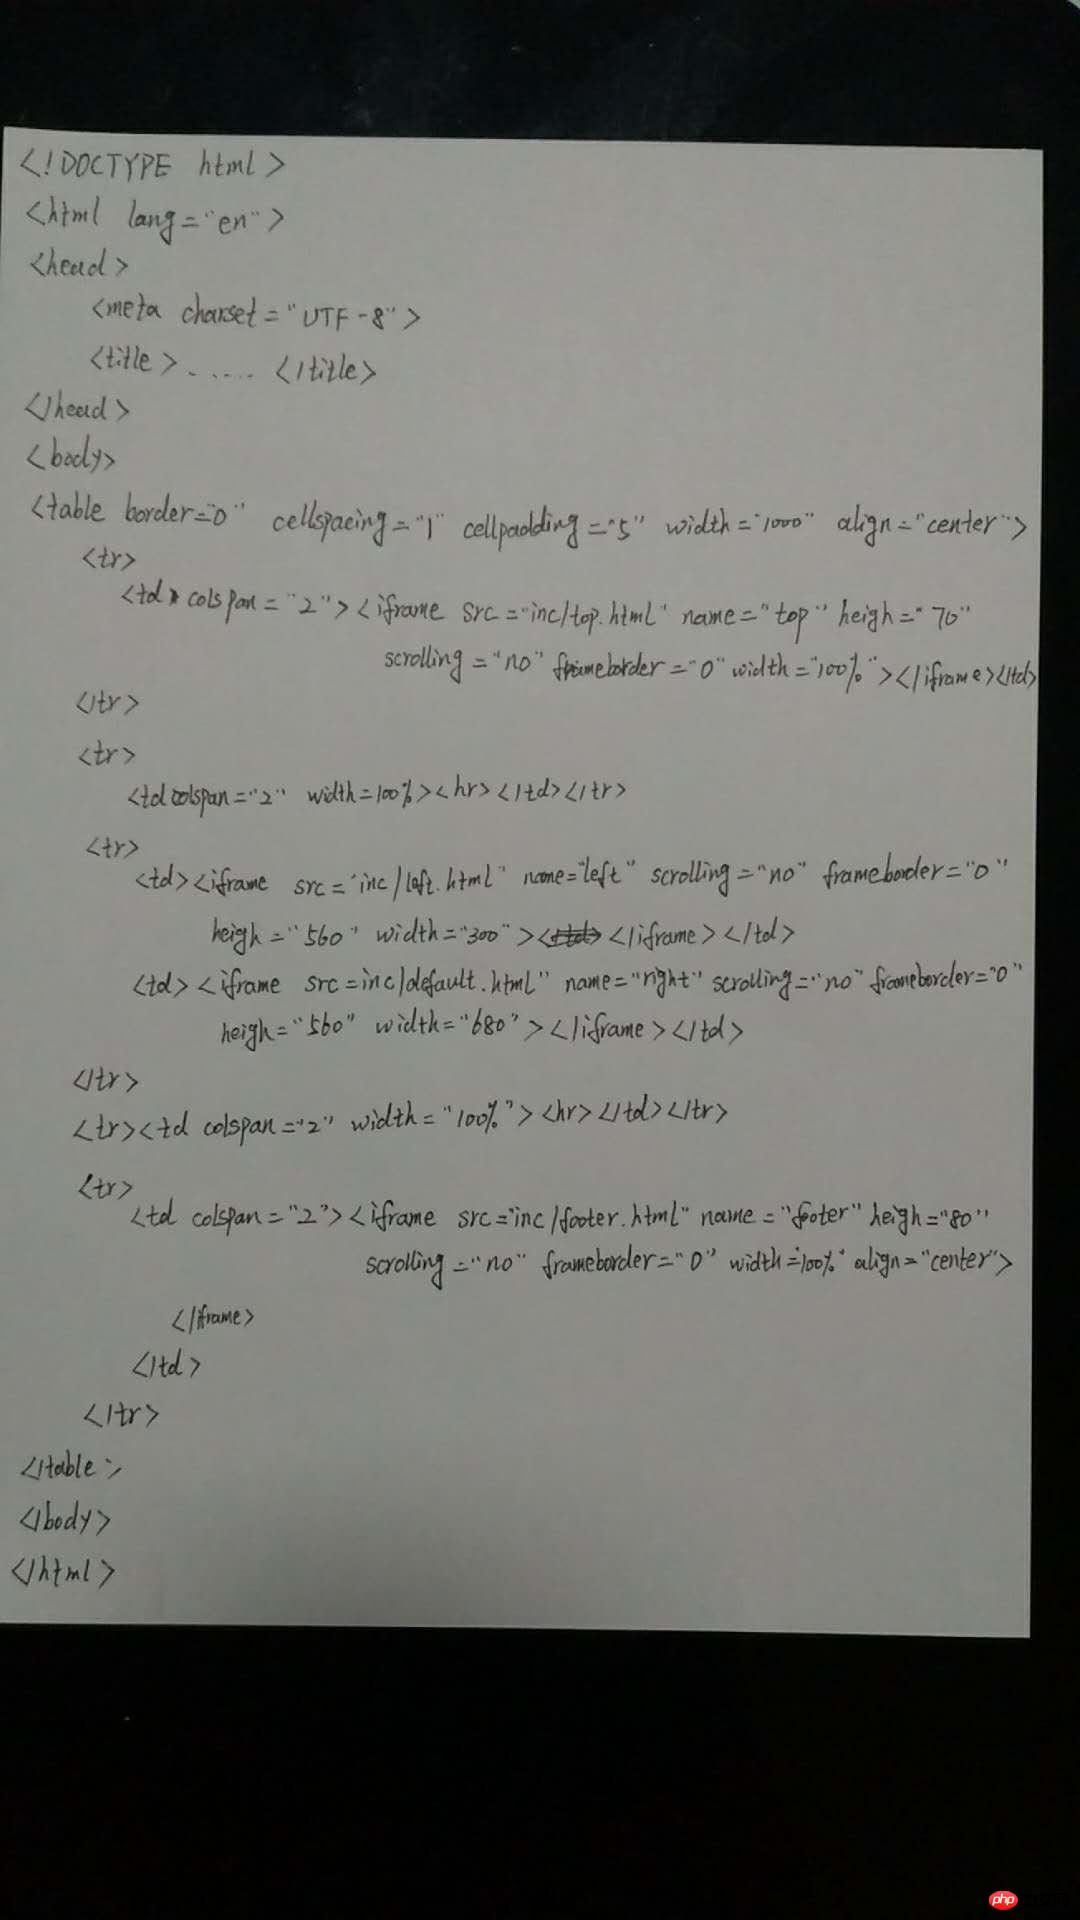 <!DOCTYPE html>
<html lang="en">
<head>
<meta charset="UTF-8">
<title>...... </title>
</head>
<body>
<table border="0" cellspacing="1" cellpadding="5" width="1000" align="center">
<tr>
<td colspan="2"><iframe src="inc/top.html" name="top" heigh="70"
scrolling="no" frameborder="0" width="100%"></iframe></td>
</tr>
<tr>
<td colspan="2" width=100%><hr></td></tr>
<tr>
<td><iframe src="inc/left.html" name="left" scrolling="no" frameborder="0"
heigh="560" width="300"></iframe></td>
<td><iframe src=inc/default.html" name="right" scrolling="no" frameborder="0"
heigh="560" width="680"></iframe></td>
</tr>
<tr><td colspan="2" width="100%"><hr></td></tr>
<tr>
<td colspan="2"><iframe src="inc/footer.html" name="footer" heigh="80"
scrolling="no" frameborder="0" width="100%" align="center">
</iframe>
</td>
</tr>
</table>
</body>
</html>
php